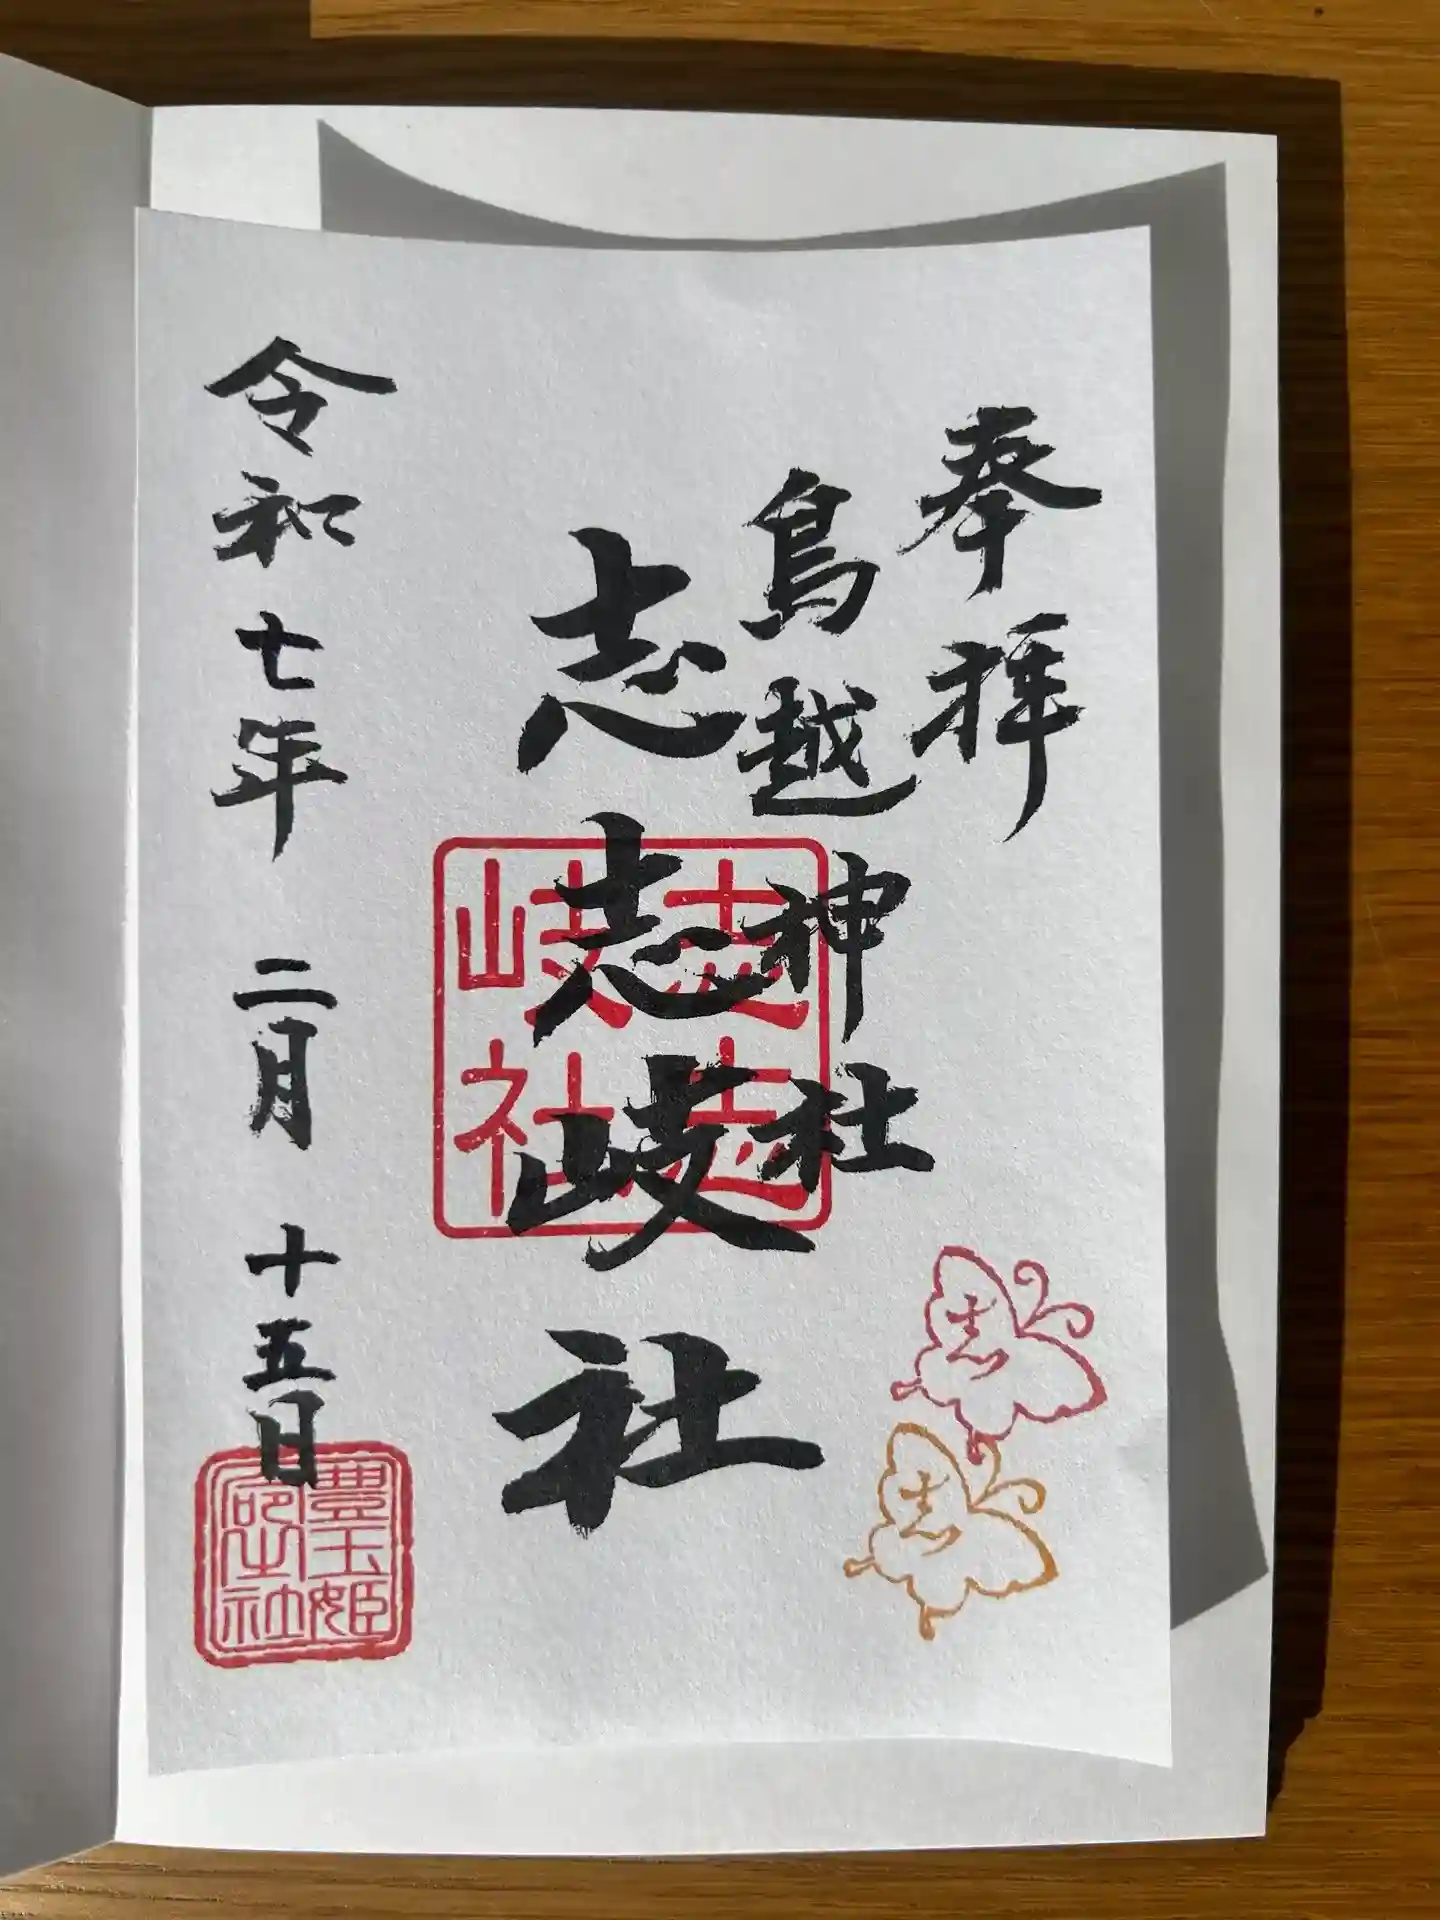 奉拝
鳥越神社
志志岐社
志志
岐社
令和七年 二月 十五日
豊玉姫
命之社
志
志